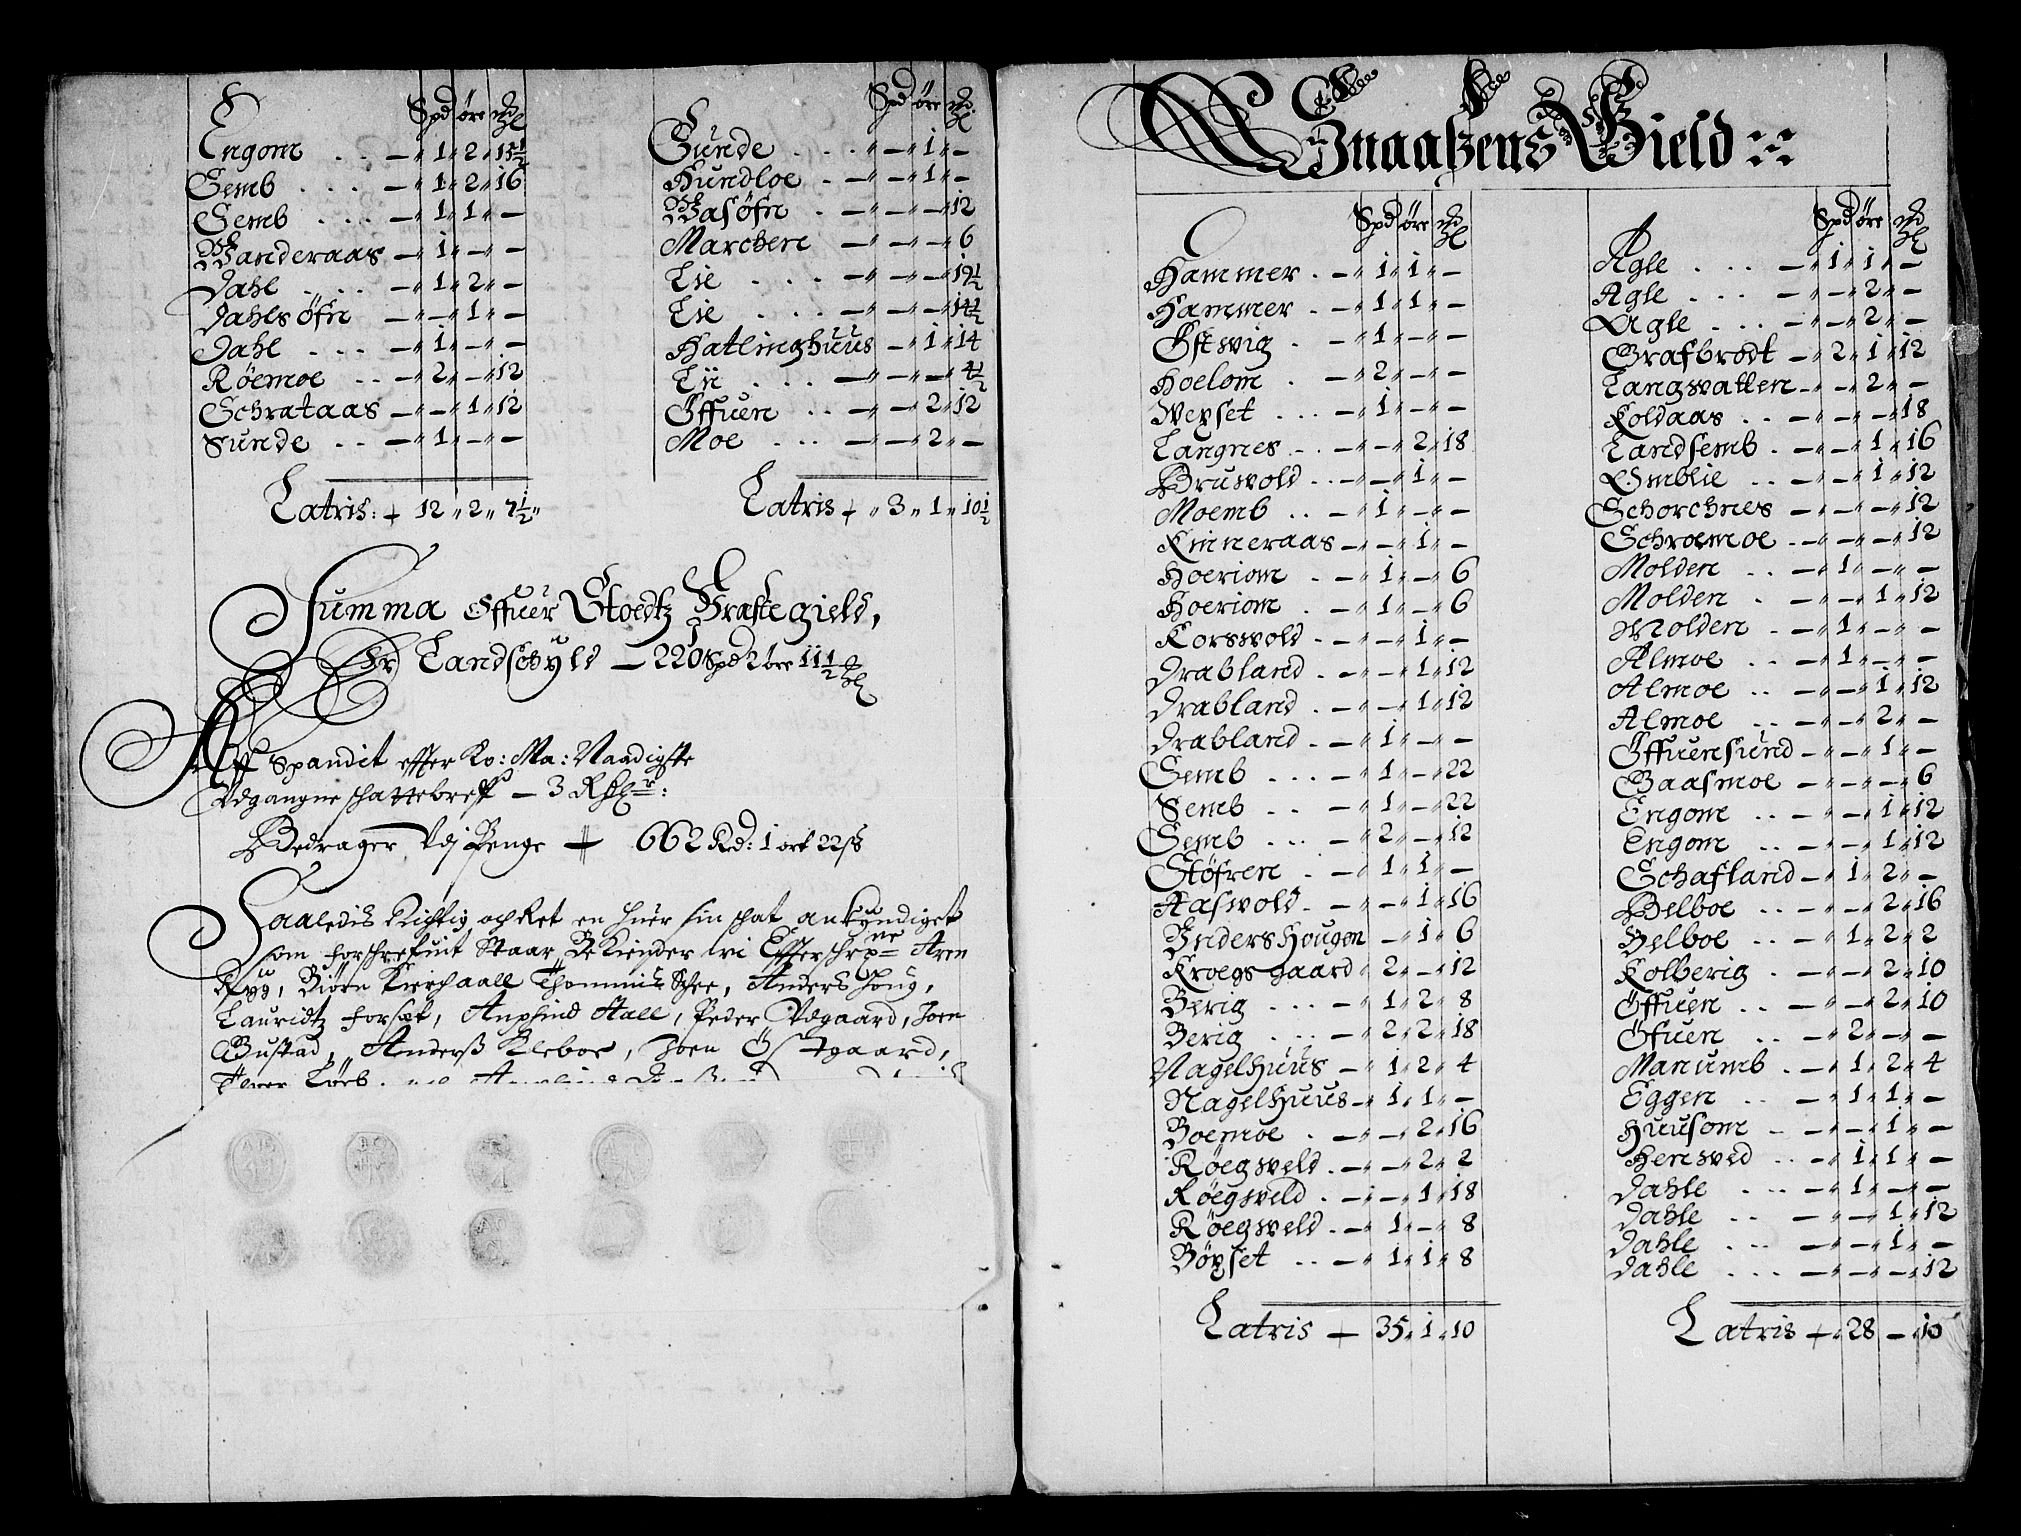 Spd öre mkl
Engom . . . — 1 „ 2 „ 15½
Semb . . . — 1 „ 2 „ 16
Semb . . . — 1 „ 1 „ —
Wanderaas — 1 „ — „ —
Dahl . . . — 1 „ 2 „ —
Dahls öfn — „ — „ 1 „ —
Dahl . . . — 1 „ — „ —
Röemoe . . — 2 „ — „ 12
Schrataas — „ — „ 1 „ 12
Sunde . . — 1 „ — „ —
Latris: + 12 „ 2 „ 7½ „
Spd öre mkl
Sunde . . . . „ — „ 1 „ —
Hundloe . — „ — „ 1 „ —
Wasöfn . — „ — „ — „ 12
Marchem — „ — „ — „ 6
Lie . . . — „ — „ — „ 19½
Lie . . . — „ — „ — „ 14½
Hatlinghuus — „ 1 „ 14
Lii . . . — „ — „ — „ 4½
Öffuen . . — „ — „ 2 „ 12
Moe . . . — „ — „ 2 „ —
Latris + „ 3 „ 1 „ 10½
Summa Offuer Stoedtz Præste gield,
Er Landschyld — 220 Spd 2 öre 11½ mkl
Aff Spandit effter Ko: Ma: Naadigste
Udgangne schattebreff — 3 Rxdlr:
Bedrager Udj Penge + 662 Rd: 1 ort 22 sk
Saaledis Richtig och Ret en huer sin schat ankyndiget
som forschrefuit Staar, Bekiender wi Effterschrne Aren
Rygg, Biörn Kirchaall Thommis Schee, Anders Houg,
Lauridtz Forsæt, Anphind Hall, Peder Udgaard, Joen
Bustad, Anderss Kleboe, Joen Östgaard,
Snaassens Gield
Spd öre mkl
Hammer . — „ 1 „ 1 „ —
Hammer . — „ 1 „ 1 „ —
Östwig . — „ 1 „ — „ —
Hoelom . — „ 2 „ — „ —
Wepset . . . — „ 1 „ — „ —
Langnes . . — „ — „ 2 „ 18
Bruwold . . — „ — „ 1 „ —
Moemb . . — „ 1 „ — „ —
Kinneraas — „ — „ 1 „ —
Hoeriom . — „ 1 „ — „ 6
Hoeriom . — „ 1 „ — „ 6
Korswold . — „ — „ 1 „ —
Drabland . — „ — „ 1 „ 12
Drabland . — „ — „ 1 „ 12
Drabland . — „ 1 „ — „ —
Semb . . . — „ 1 „ — „ 22
Semb . . — „ 1 „ — „ 22
Semb . . . — „ 2 „ — „ 12
Stöfren . — „ 1 „ 1 „ —
Aaswold . — „ — „ 1 „ 16
Inders Hougen — „ 1 „ 6
Kroegs gaard „ 2 „ — „ 12
Berig . . . — „ 1 „ 2 „ 8
Berig . . . — „ 2 „ 2 „ 18
Nagelhuus — „ 1 „ 2 „ 4
Nagelhuus — „ 1 „ 1 „ —
Boemoe . — „ — „ 2 „ 16
Röegsveld . — „ — „ 2 „ 2
Röegsveld . — „ — „ 1 „ 18
Röegsveld . — „ 1 „ — „ 8
Böpset . . — „ 1 „ 1 „ 8
Latris + 35 „ 1 „ 10
Spd öre mkl
Agle . . . — „ 1 „ 1 „ —
Agle . . . — „ — „ 2 „ —
Agle . . . — „ — „ 2 „ —
Grafbrodt — „ 2 „ 1 „ 12
Langsvatten — „ — „ 2 „ —
Koldaas . . — „ — „ — „ 18
Landsemb . — „ — „ 1 „ 16
Emblie . . — „ — „ 1 „ 12
Schorchnes — „ — „ — „ 12
Schroemoe . — „ — „ — „ 12
Molden . . — „ 1 „ — „ —
Molden . — „ — „ 1 „ 12
Molden . — „ 1 „ — „ —
Almoe . . — „ 1 „ — „ —
Almoe . . — „ — „ 1 „ 12
Almoe . . — „ — „ 2 „ —
Öffuensund — „ — „ 1 „ —
Baasmoe — „ — „ — „ 6
Engom . . — „ — „ 1 „ 12
Engom . . — „ — „ 1 „ 12
Schafland — „ 1 „ 2 „ —
Belboe . . — „ — „ 2 „ 16
Belboe . . — „ 1 „ 2 „ 2
Kolberig . — „ — „ 2 „ 10
Öffuen . . — „ — „ 2 „ 10
Öfuen . . — „ 2 „ — „ —
Manumb . — „ 1 „ 2 „ 4
Eggen . . — „ 1 „ 1 „ —
Huusom . — „ — „ 1 „ —
Hemsved . . — „ 1 „ 1 „ —
Dahle . . . — „ 1 „ — „ —
Dahle . . — „ — „ 1 „ 12
Dahle . . . — „ — „ 1 „ —
Dahle . . . — „ — „ — „ 12
Latris + „ 28 — „ 10